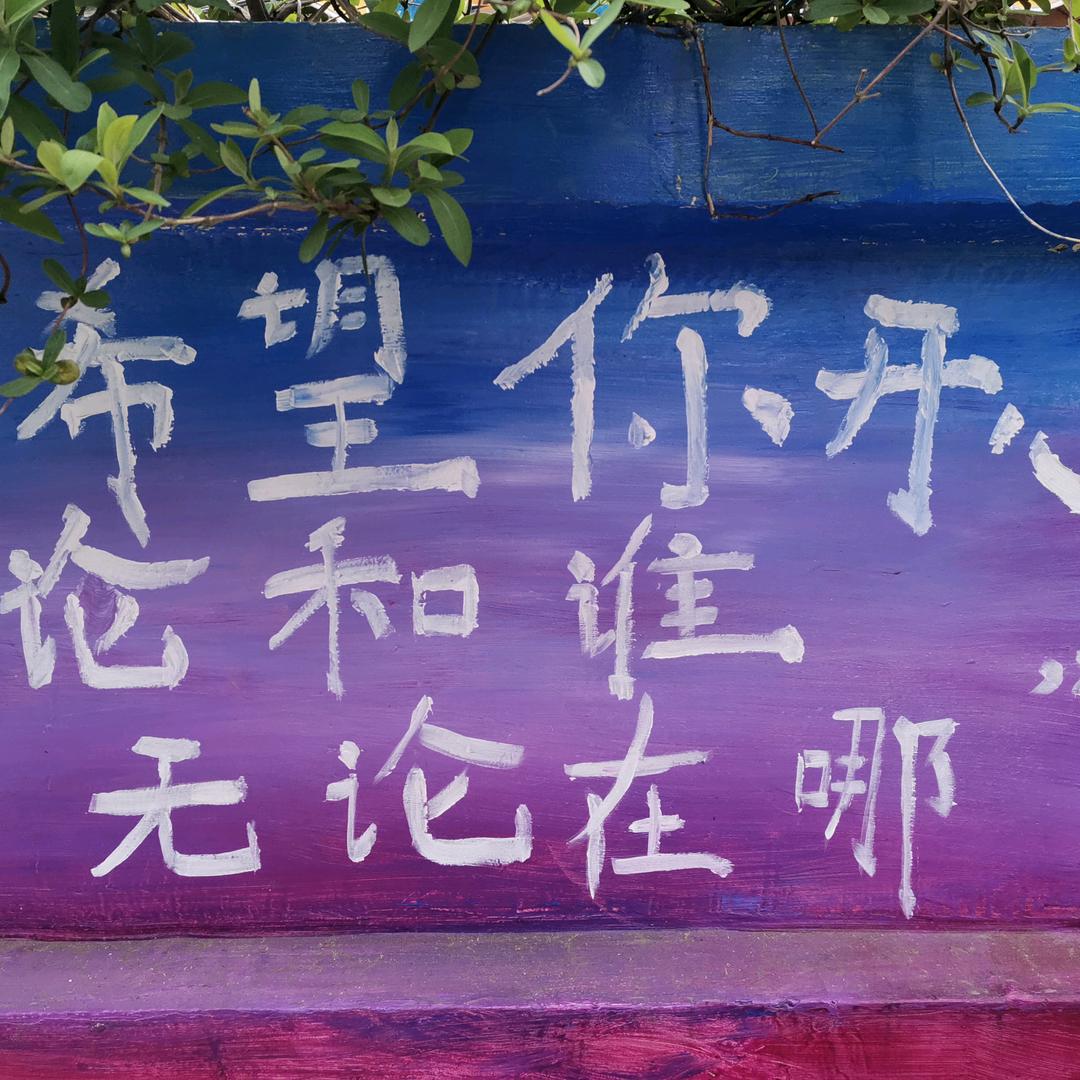 希望你开
论和谁
无论在哪